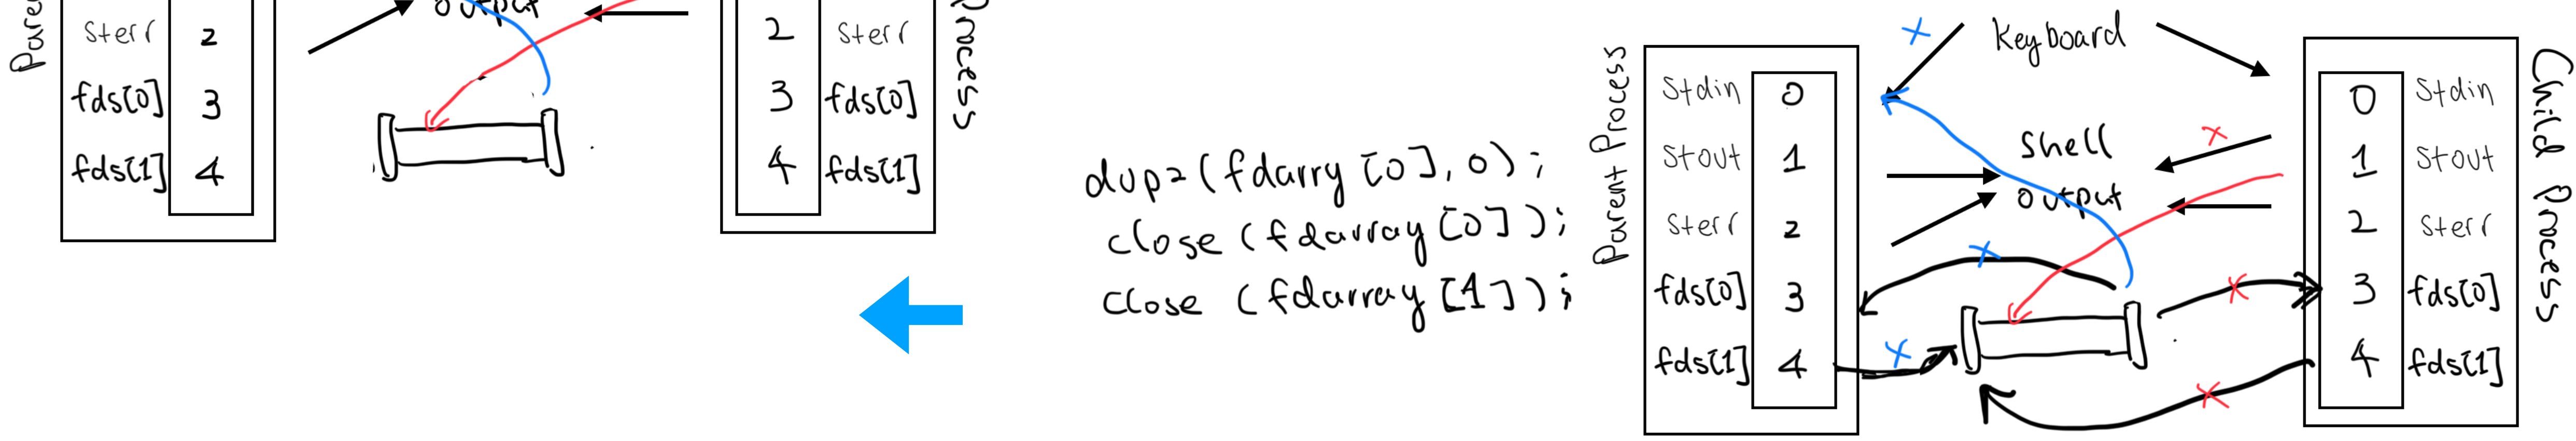 Pare
output
Sterr 2
fds[0] 3
fds[1] 4
2 Sterr
3 fds[0]
4 fds[1]
Process
dup2(fdarry[0], 0);
close (fdarray[0]);
close (fdarray[1]);
Parent Process
Stdin 0
Stout 1
Sterr 2
fds[0] 3
fds[1] 4
Keyboard
Shell
output
0 Stdin
1 Stout
2 Sterr
3 fds[0]
4 fds[1]
Child Process